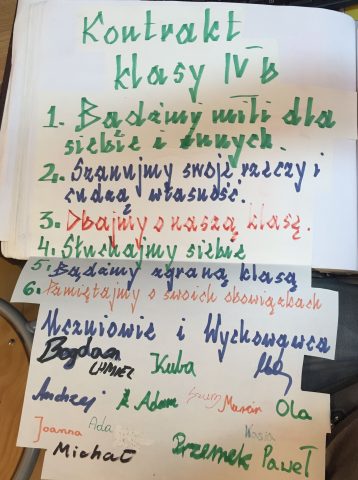 Kontrakt
klasy IV b
1. Bądźmy mili dla
siebie i innych.
2. Szanujmy swoje rzeczy i
cudzą własność.
3. Dbajmy o naszą klasę.
4. Słuchajmy siebie
5. Bądźmy zgraną klasą
6. Pamiętajmy o swoich obowiązkach
Uczniowie i Wychowawca
Bogdan
Kuba
Andrzej Adam Marcin Ola
Joanna Ada
Michał Przemek Paweł